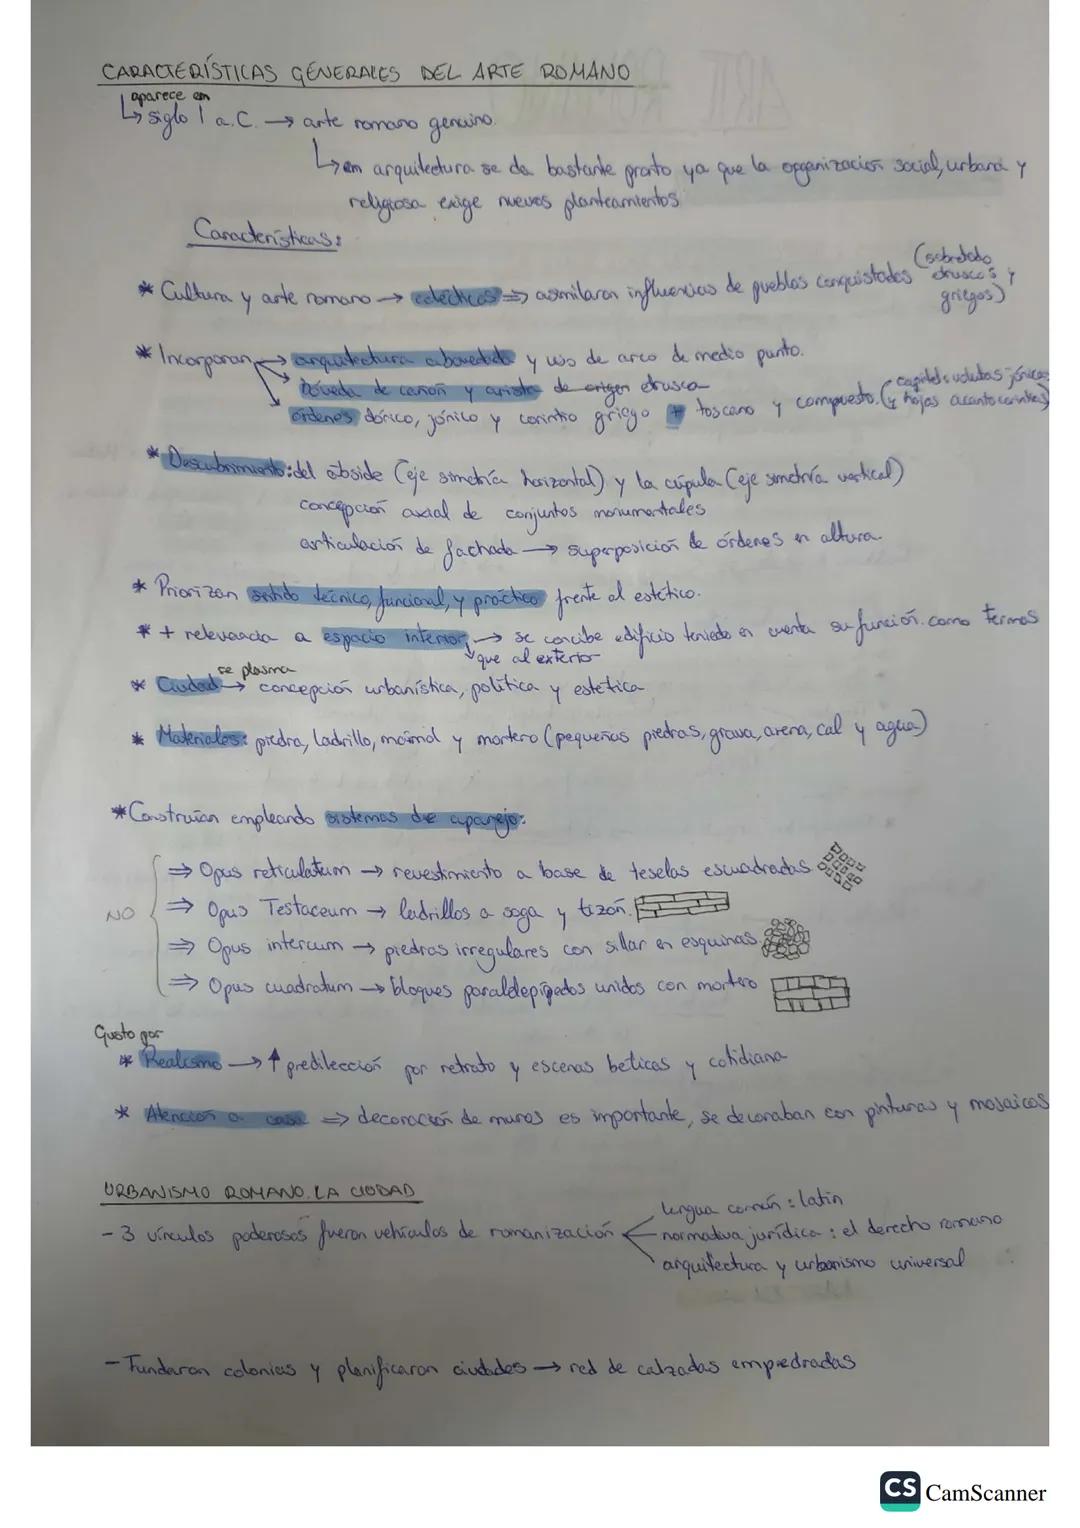 CARACTERÍSTICAS GENERALES DEL ARTE ROMANO
aparece en
↳ siglo I a.C. → arte romano genuino.
↳ en arquitectura se da bastante pronto ya que la organización social, urbana y
religiosa exige nuevos planteamientos
Características:
* Cultura y arte romano → eclécticos ⇒ asimilaron influencias de pueblos conquistados (sobretodo
etruscos y
griegos)
* Incorporan → arquitectura abovedada y uso de arco de medio punto.
→ bóveda de cañón y arista de origen etrusca
→ órdenes dórico, jónico y corintio griego + toscano y compuesto. (capitel: volutas jónicas
y hojas acanto corintias)
* Descubrimiento: del ábside (eje simetría horizontal) y la cúpula (eje simetría vertical)
concepción axial de conjuntos monumentales
articulación de fachada → superposición de órdenes en altura.
* Priorizan sentido técnico, funcional, y práctico frente al estético.
* + relevancia a espacio interior, → se concibe edificio teniedo en cuenta su función. como termas
que al exterior
se plasma
* Ciudad → concepción urbanística, política y estética
* Materiales: piedra, ladrillo, mármol y mortero (pequeñas piedras, grava, arena, cal y agua)
* Construían empleando sistemas de aparejo:
⇒ Opus reticulatum → revestimiento a base de teselas escuadradas
NO ⇒ Opus Testaceum → ladrillos a soga y tizón.
⇒ Opus intercum → piedras irregulares con sillar en esquinas
⇒ Opus cuadratum → bloques paraldepípedos unidos con mortero
Gusto por
* Realismo → ↑ predilección por retrato y escenas belicas y cotidiana
* Atención a casa ⇒ decoración de muros es importante, se decoraban con pinturas y mosaicos
URBANISMO ROMANO. LA CIUDAD
lengua común: latin
- 3 vínculos poderosos fueron vehículos de romanización normativa jurídica: el derecho romano
arquitectura y urbanismo universal
- Fundaron colonias y planificaron ciudades → red de calzadas empredradas
CS CamScanner